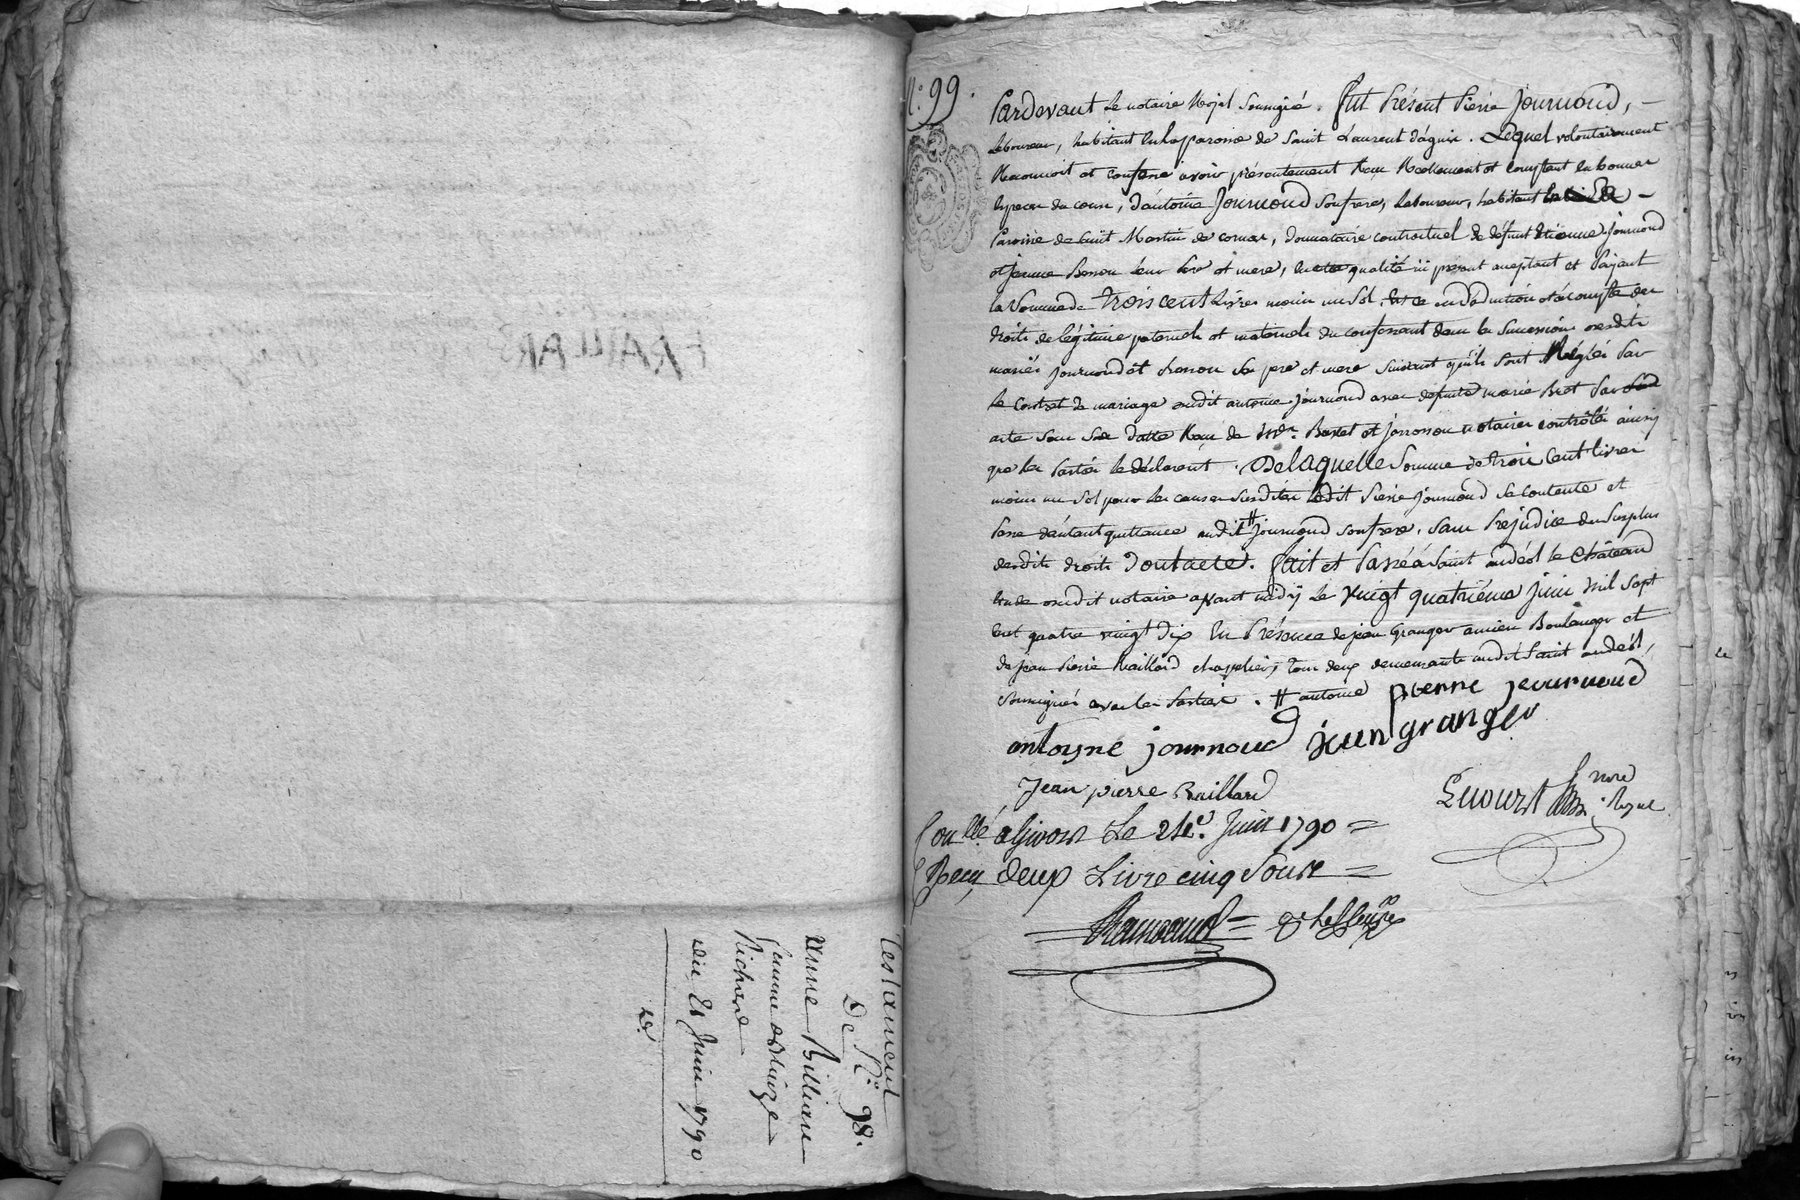 Testament
De N.º 98.
anne Billiau
femme de
Richard
du 21 Juin 1790
N.º 99.
Pardevant le notaire Royal soussigné. fut présent Pierre Journoud,
laboureur, habitant en la paroisse de Saint Laurent d'agnix. Lequel volontairement
Reconnoit et confesse avoir présentement Reçu Réellement et comptant en bonnes
especes du cours, d'antoine Journoud son frere, laboureur, habitant
Paroisse de Saint Martin de cornas, donnataire contractuel de défunt Etienne Journoud
et jeanne Besson leur Pere et mere, en cette qualité ici présent acceptant et Payant
la Somme de trois cent Livres moins un Sol, et ce en déduction et à compte des
droits de légitime paternels et maternels du confessant dans les Successions desdits
mariés journoud et Besson ses pere et mere suivant qu'ils sont Réglés Par
le Contrat de mariage dudit antoine journoud avec defunte marie Bret Par
acte sous Sa datte Reçu de Mes. Basset et notaires contrôlé ainsy
que les Parties le déclarent. De laquelle Somme de trois Cent livres
moins un Sol pour les causes Susdites ledit Pierre journoud se contente et
Passe d'autant quittance audit # journoud son frere, sans Préjudice du Surplus
desdits droits dont acte. fait et Passé à Saint andéol le Château
étude dudit notaire avant midy le vingt quatrieme Juin mil Sept
cent quatre vingt dix En Présence de jean Granger ancien Boulanger et
de jean Pierre Raillard chapelier, tous deux demeurants audit Saint andéol,
soussignés avec les Parties. # antoine pierre journoud
antoyne journoud jean granger
Jean pierre Raillard
nore Royal
Conllé à Givors Le 24e. Juin 1790 =
Reçu deux Livre cinq Sous =